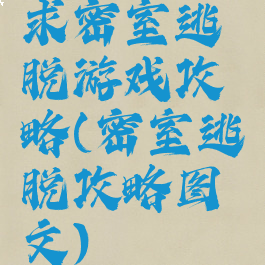 求密室逃
脱游戏攻
略(密室逃
脱攻略图
文)